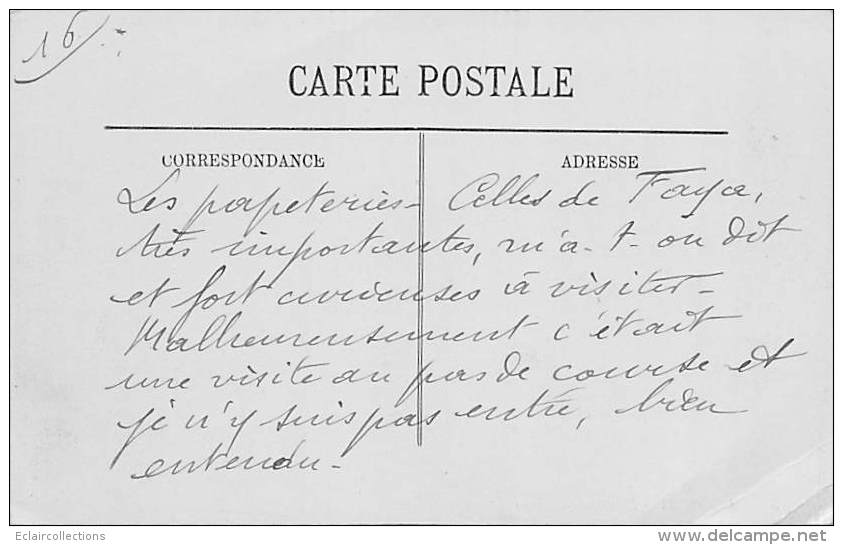 16
CARTE POSTALE
CORRESPONDANCE
ADRESSE
Les papeteries - Celles de Faya,
très importantes, m'a-t-on dit
et fort curieuses à visiter -
Malheureusement c'était
une visite au pas de course et
je n'y suis pas entré, bien
entendu -
Eclaircollections
delcampe.net